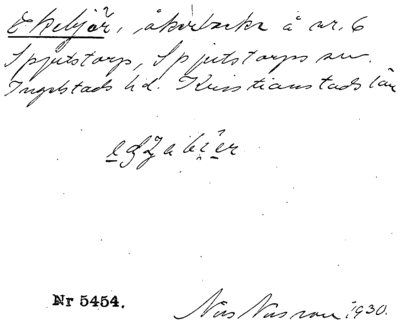 Ekebjär, åkerbacke å nr. 6
Spjutstorp, Spjutstorps sn.
Ingelstads hd. Kristianstads län
Nr 5454.
Nils Nilsson 1930.